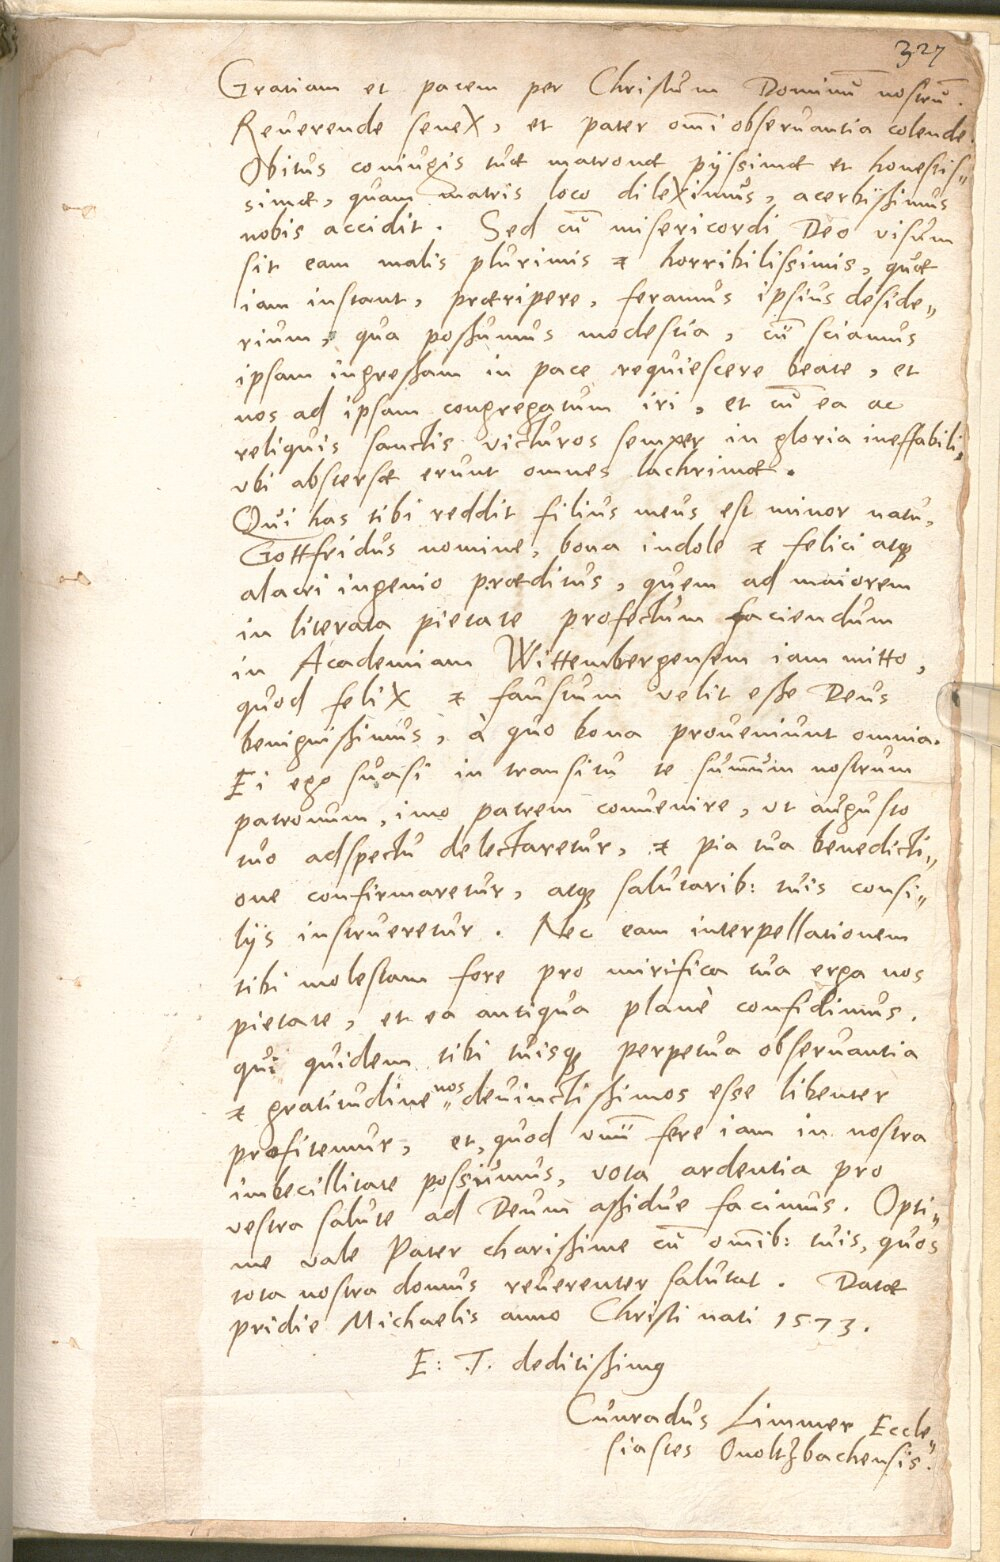 327
Gratiam et pacem per Christum Dominū nostrū.
Reuerende senex, et pater om̄i obseruantia colende.
Obitus coniugis tuæ matronæ pijssimæ et honestis„
simæ, quam matris loco dileximus, acerbißimus
nobis accidit. Sed cū misericordi Deo visum
sit eam malis plurimis & horribilissimis, quæ
iam instant, præripere, feramus ipsius deside„
rium, qua poßumus modestia, cū sciamus
ipsam ingreßam in pace requiescere beate, et
nos ad ipsam congregatum iri, et cū ea ac
reliquis sanctis victuros semper in gloria ineffabili,
vbi abstersæ erunt omnes lachrimæ.
Qui has tibi reddit filius meus est minor natu,
Gottfridus nomine, bona indole & felici atq;
alacri ingenio præditus, quem ad maiorem
in literata pietate profectum faciendum
in Academiam Wittembergensem iam mitto,
quod felix & faustum velit eße Deus
benignißimus, à quo bona proueniunt omnia.
Ei ego suasi in transitu te sum̄um nostrum
patronum, imo patrem conuenire, vt augusto
tuo adspectu delectaretur, & pia tua benedicti„
one confirmaretur, atq; salutarib: tuis consi„
lijs instrueretur. Nec eam interpellationem
tibi molestam fore pro mirifica tua erga nos
pietate, et ea antiqua planè confidimus.
qui quidem tibi tuisq; perpetua obseruantia
& gratitudine nos deuinctißimos esse libenter
profitemur, et, quod vnū fere iam in nostra
imbecillitate possumus, vota ardentia pro
vestra salute ad Deum aßidue facimus. Opti„
me vale Pater charißime cū om̄ib: tuis, quos
tota nostra domus reuerenter salutat. Datæ
pridie Michaelis anno Christi nati 1573.
E: T. deditißimꝰ
Cunradus Limmer Eccle„
siastes Onoltzbachensis.